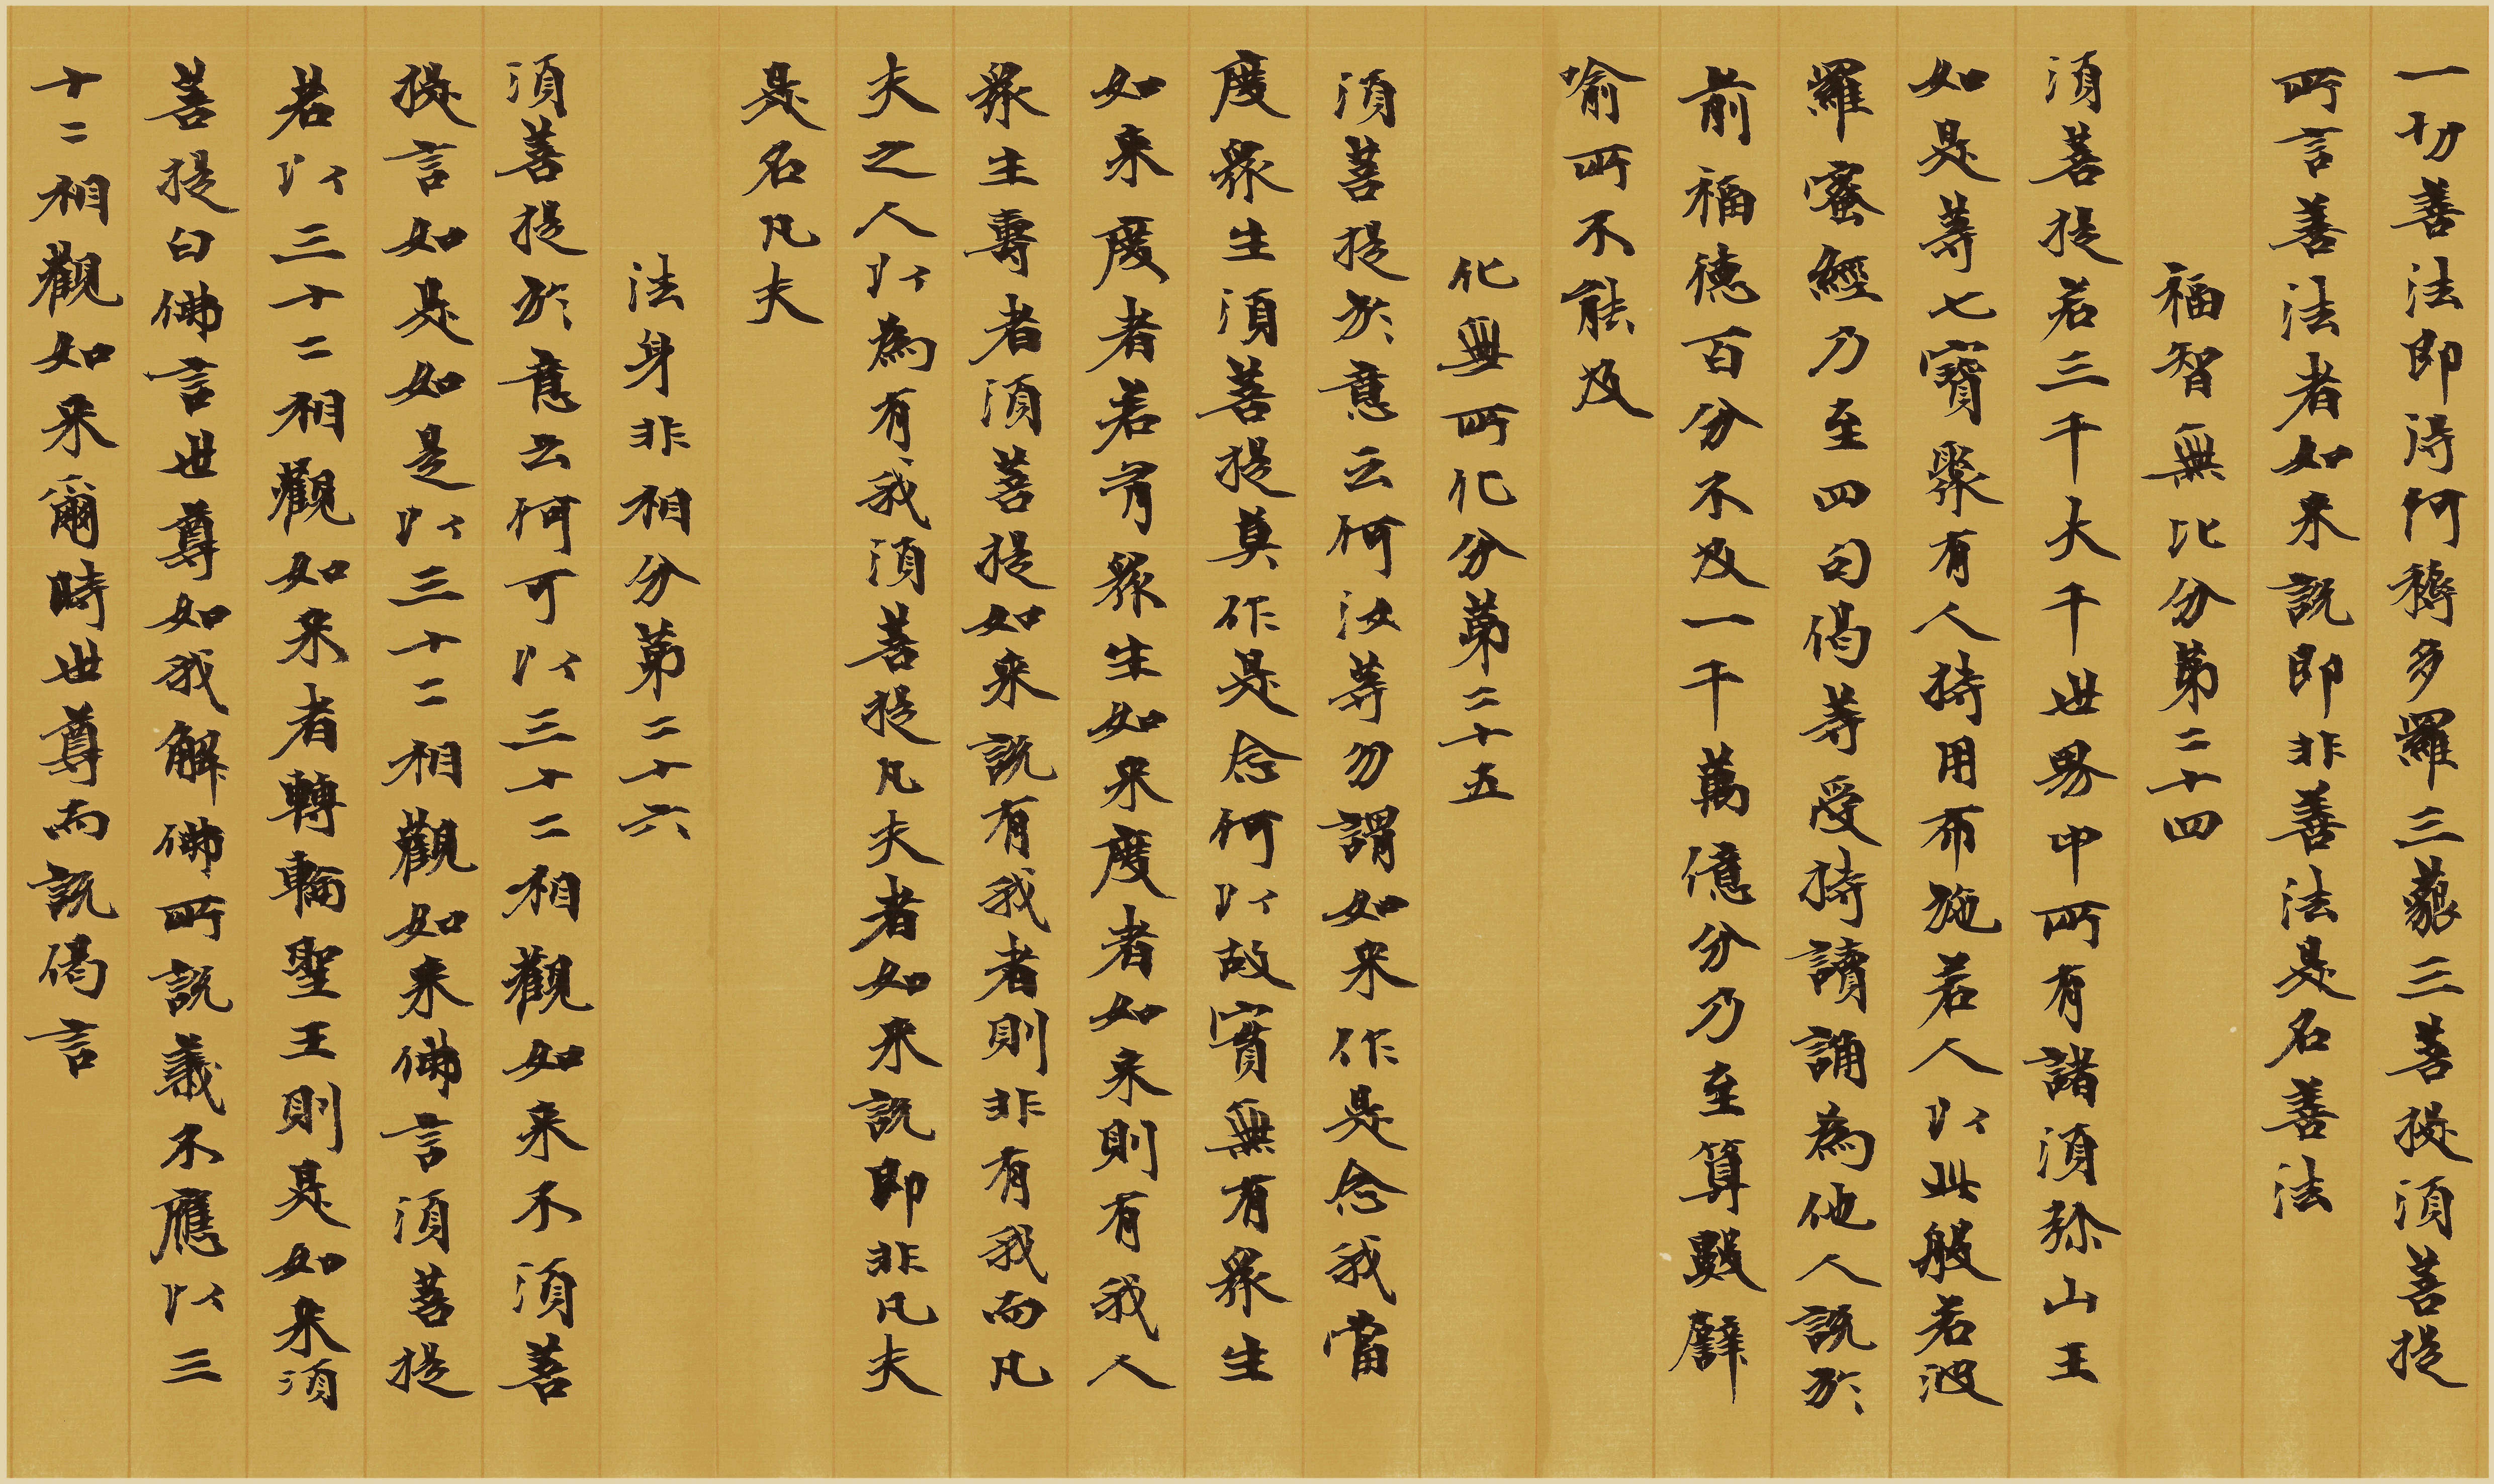 一切善法即得阿耨多羅三藐三菩提須菩提
所言善法者如来説即非善法是名善法
福智無比分第二十四
須菩提若三千大千世界中所有諸須弥山王
如是等七寶聚有人持用布施若人以此般若波
羅蜜經乃至四句偈等受持讀誦為他人説於
前福徳百分不及一千萬億分乃至算數譬
喻所不能及
化無所化分第二十五
須菩提於意云何汝等勿謂如来作是念我當
度衆生須菩提莫作是念何以故實無有衆生
如来度者若有衆生如来度者如来則有我人
衆生壽者須菩提如来説有我者則非有我而凡
夫之人以為有我須菩提凡夫者如来説即非凡夫
是名凡夫
法身非相分第二十六
須菩提於意云何可以三十二相觀如来不須菩
提言如是如是以三十二相觀如来佛言須菩提
若以三十二相觀如来者轉輪聖王則是如来須
菩提白佛言世尊如我解佛所説義不應以三
十二相觀如来爾時世尊而説偈言